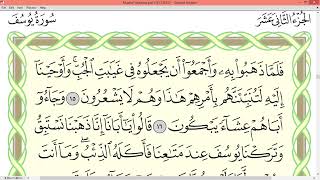 الجزء الثاني عشر
سورة يوسف
فَلَمَّا ذَهَبُوا۟ بِهِۦ وَأَجْمَعُوٓا۟ أَن يَجْعَلُوهُ فِى غَيَٰبَتِ ٱلْجُبِّ ۚ وَأَوْحَيْنَآ
إِلَيْهِ لَتُنَبِّئَنَّهُم بِأَمْرِهِمْ هَٰذَا وَهُمْ لَا يَشْعُرُونَ ١٥ وَجَآءُوٓ
أَبَاهُمْ عِشَآءً يَبْكُونَ ١٦ قَالُوا۟ يَٰٓأَبَانَآ إِنَّا ذَهَبْنَا نَسْتَبِقُ
وَتَرَكْنَا يُوسُفَ عِندَ مَتَٰعِنَا فَأَكَلَهُ ٱلذِّئْبُ ۖ وَمَآ أَنتَ